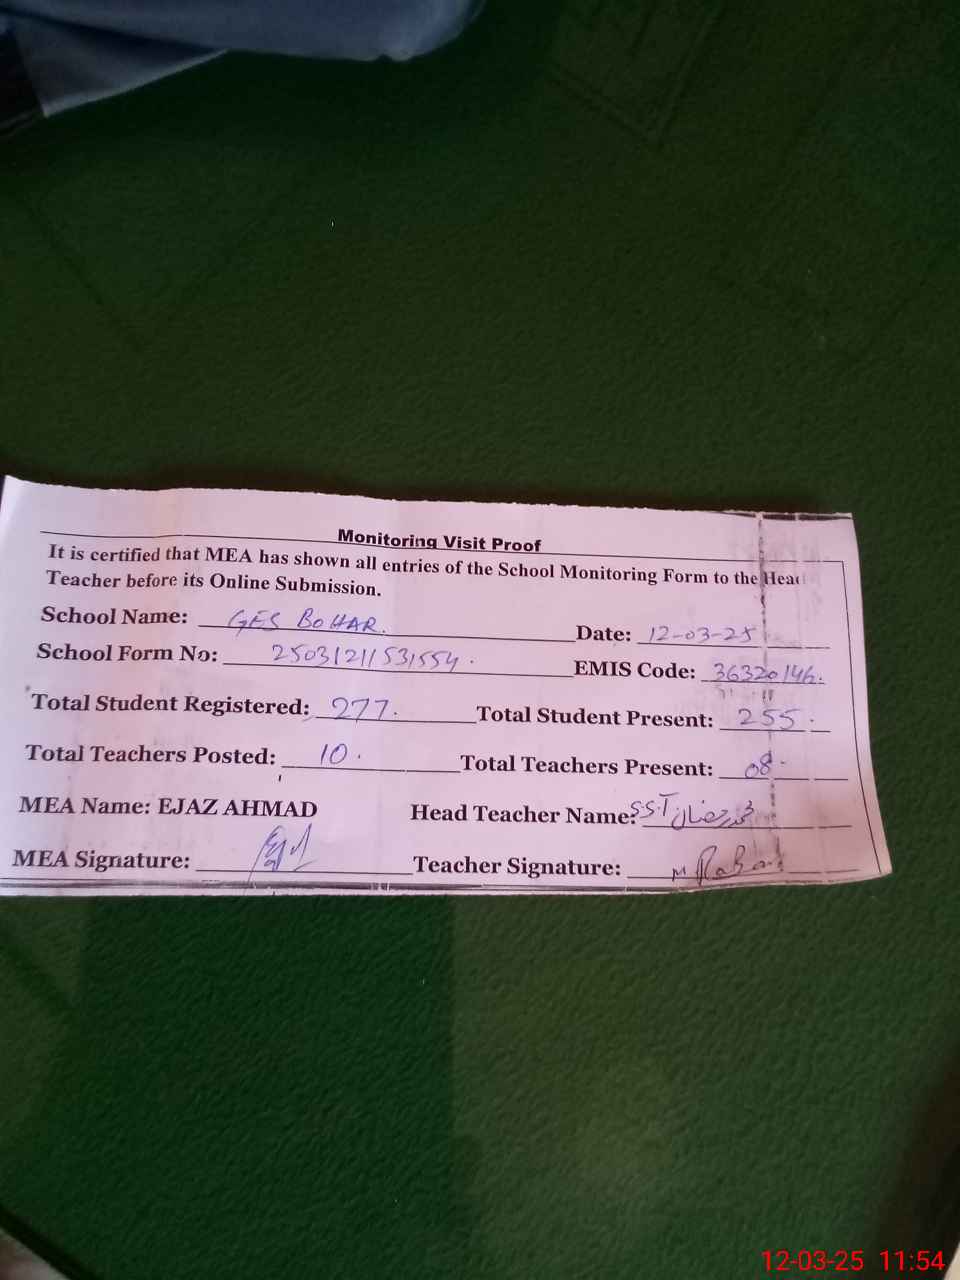 Monitoring Visit Proof
It is certified that MEA has shown all entries of the School Monitoring Form to the Head
Teacher before its Online Submission.
School Name: GES BOHAR. Date: 12-03-25
School Form No: 25031211531554. EMIS Code: 36320146.
Total Student Registered: 277. Total Student Present: 255.
Total Teachers Posted: 10. Total Teachers Present: 08
MEA Name: EJAZ AHMAD Head Teacher Name: S.S.T محمد رمضان
MEA Signature: Teacher Signature: M
12-03-25 11:54